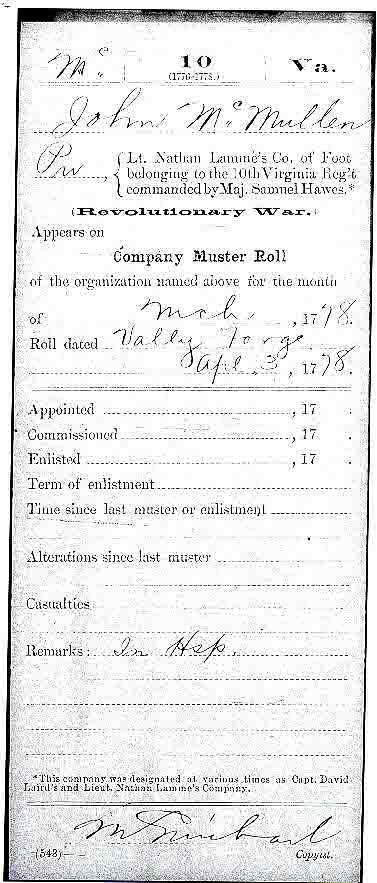 Mc | 10 | Va.
(1776-1778.)
John McMullen
Pvt, { Lt. Nathan Lamme's Co. of Foot
belonging to the 10th Virginia Reg't
commanded by Maj. Samuel Hawes.*
(Revolutionary War.)
Appears on
Company Muster Roll
of the organization named above for the month
of Mch, 1778.
Roll dated Vally Forge
Apl. 3, 1778.
Appointed , 17 .
Commissioned , 17 .
Enlisted , 17 .
Term of enlistment
Time since last muster or enlistment
Alterations since last muster
Casualties
Remarks: In Hsp.
*This company was designated at various times as Capt. David
Laird's and Lieut. Nathan Lamme's Company.
(543) Copyist.